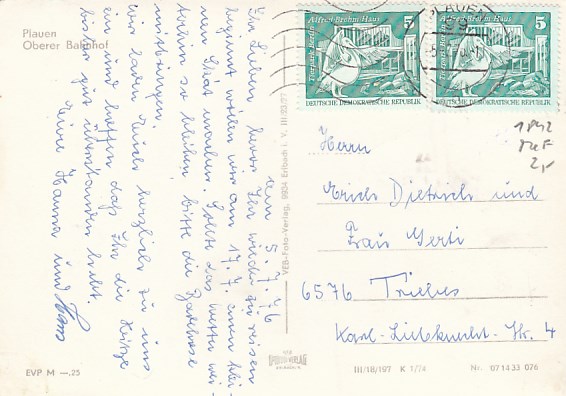 Plauen
Oberer Bahnhof
den 5. 7. 76
Ihr Lieben, bevor Ihr wieder zu reisen
beginnt wollen wir am 17. 7. einen klei-
nen Skat machen. Sollte das Wetter wei-
terhin so bleiben, bitte die Badehose
mitbringen.
Wir laden Euch herzlich zu uns
ein und hoffen, daß Ihr die Hitze
bisher gut überstanden habt.
Eure Hanna und Hans
EVP M —,25
VEB-Foto-Verlag, 9934 Erlbach i. V.
Alfred Brehm Haus
Tierpark Berlin
5
DEUTSCHE DEMOKRATISCHE REPUBLIK
Alfred Brehm Haus
Tierpark Berlin
5
DEUTSCHE DEMOKRATISCHE REPUBLIK
1842
MeF
2,-
Herrn
Erich Dietrich und
Frau Gerti
6576 Triebes
Karl-Liebknecht-Str. 4
III/18/197 K 1/74 Nr. 071433 076